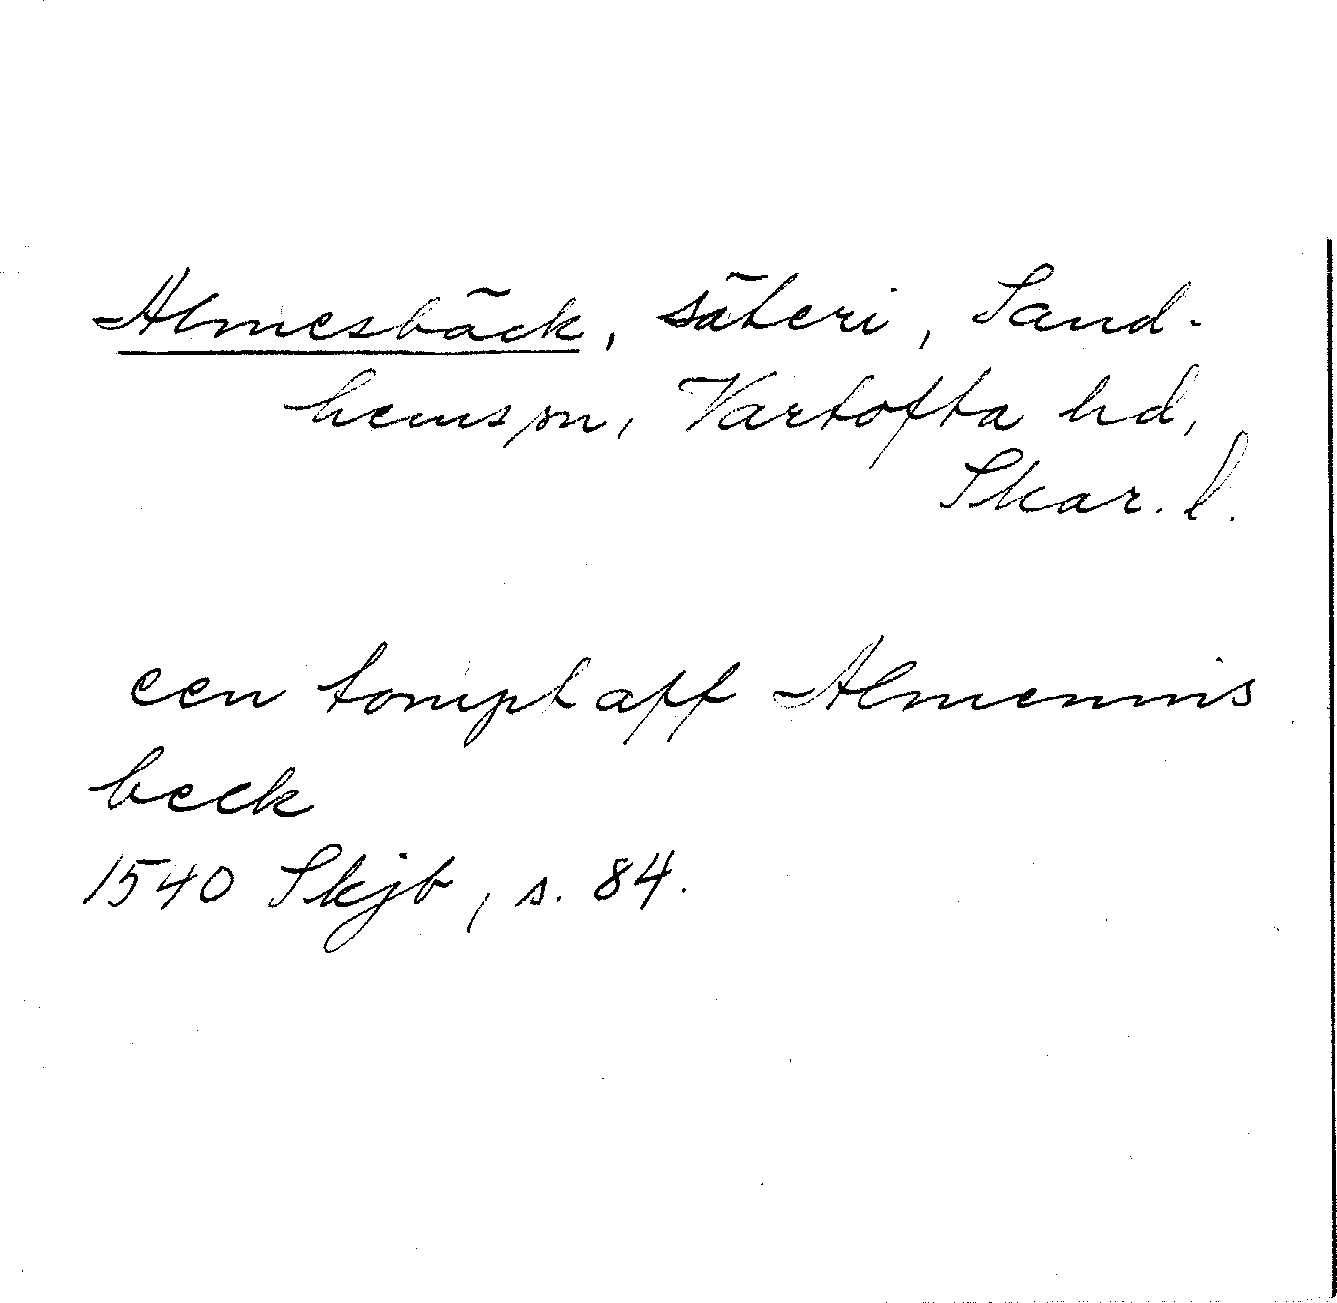 Almesbäck, säteri, Sand-
hems sn, Vartofta hd,
Skar. l.
een tompt aff Almennis
beck
1540 Skjb, s. 84.